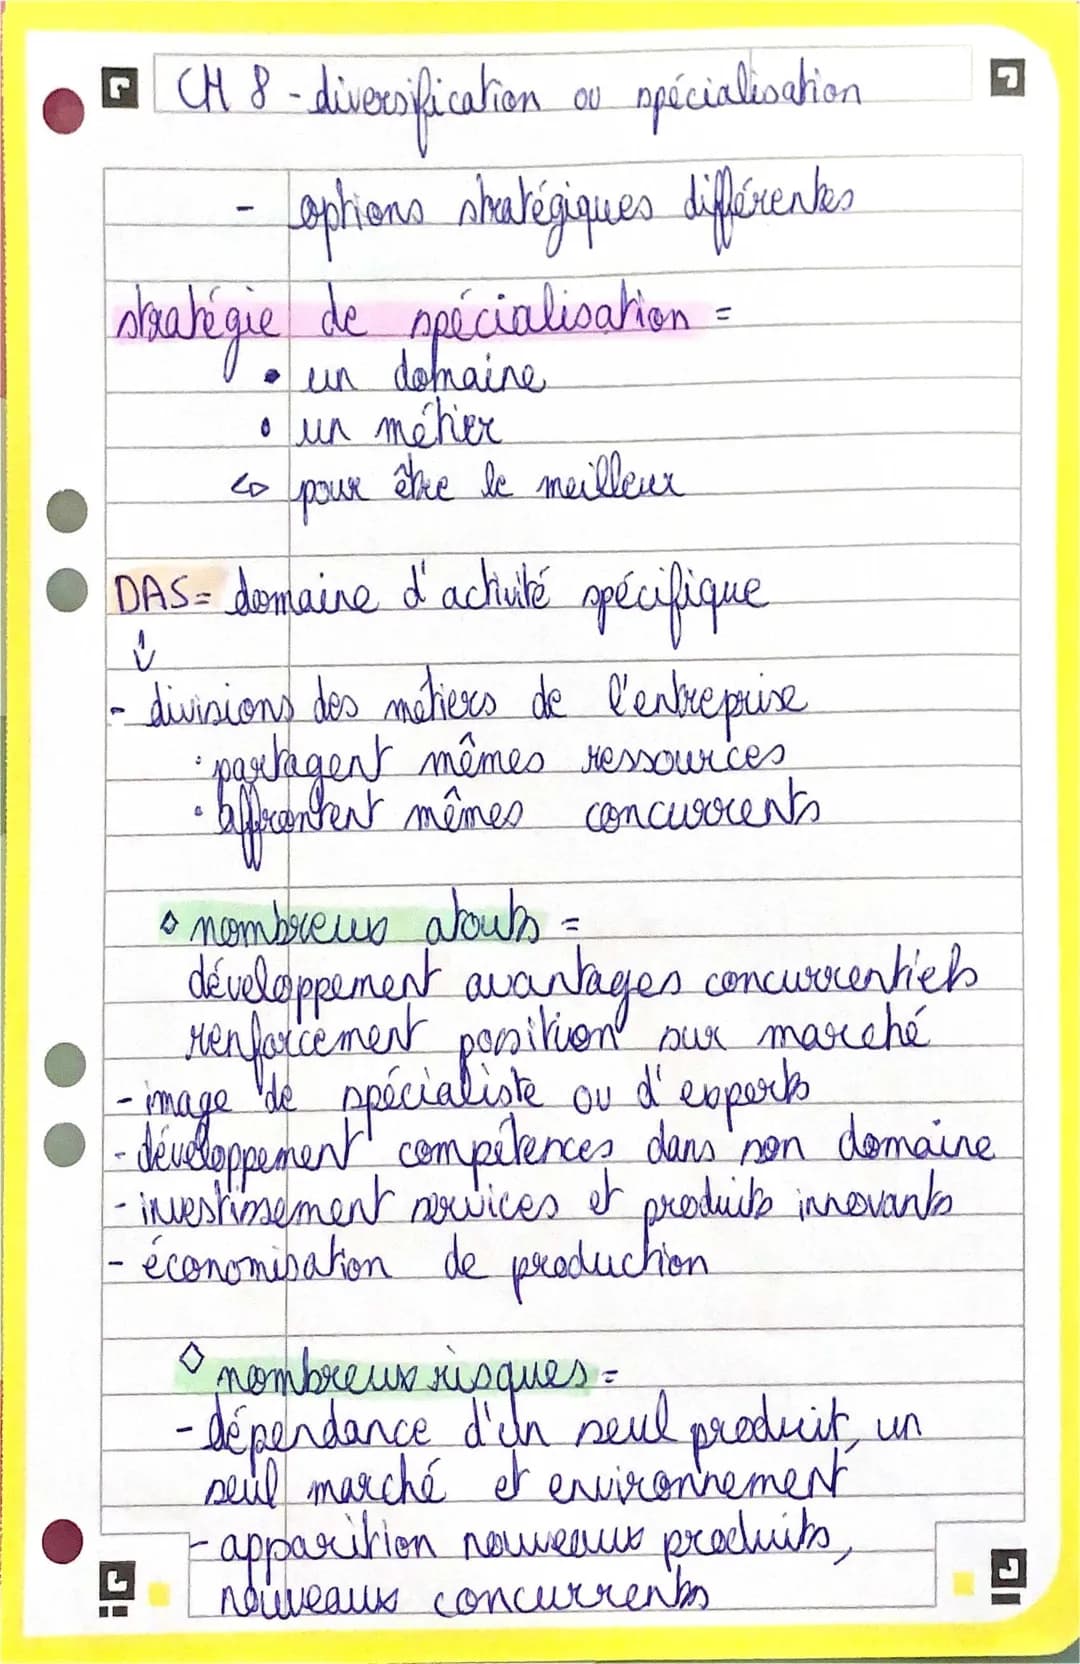 CH 8 - diversification ou spécialisation
- options stratégiques différentes
stratégie de spécialisation =
• un domaine
• un métier
↳ pour être le meilleur
DAS = domaine d'activité spécifique
↓
- divisions des métiers de l'entreprise
· partagent mêmes ressources
· affrontent mêmes concurrents
◊ nombreux atouts =
développement avantages concurrentiels
renforcement position sur marché
- image de spécialiste ou d'experts
- développement compétences dans son domaine
- investissement services et produits innovants
- économisation de production
◊ nombreux risques =
- dépendance d'un seul produit, un
seul marché et environnement
- apparition nouveaux produits,
nouveaux concurrents